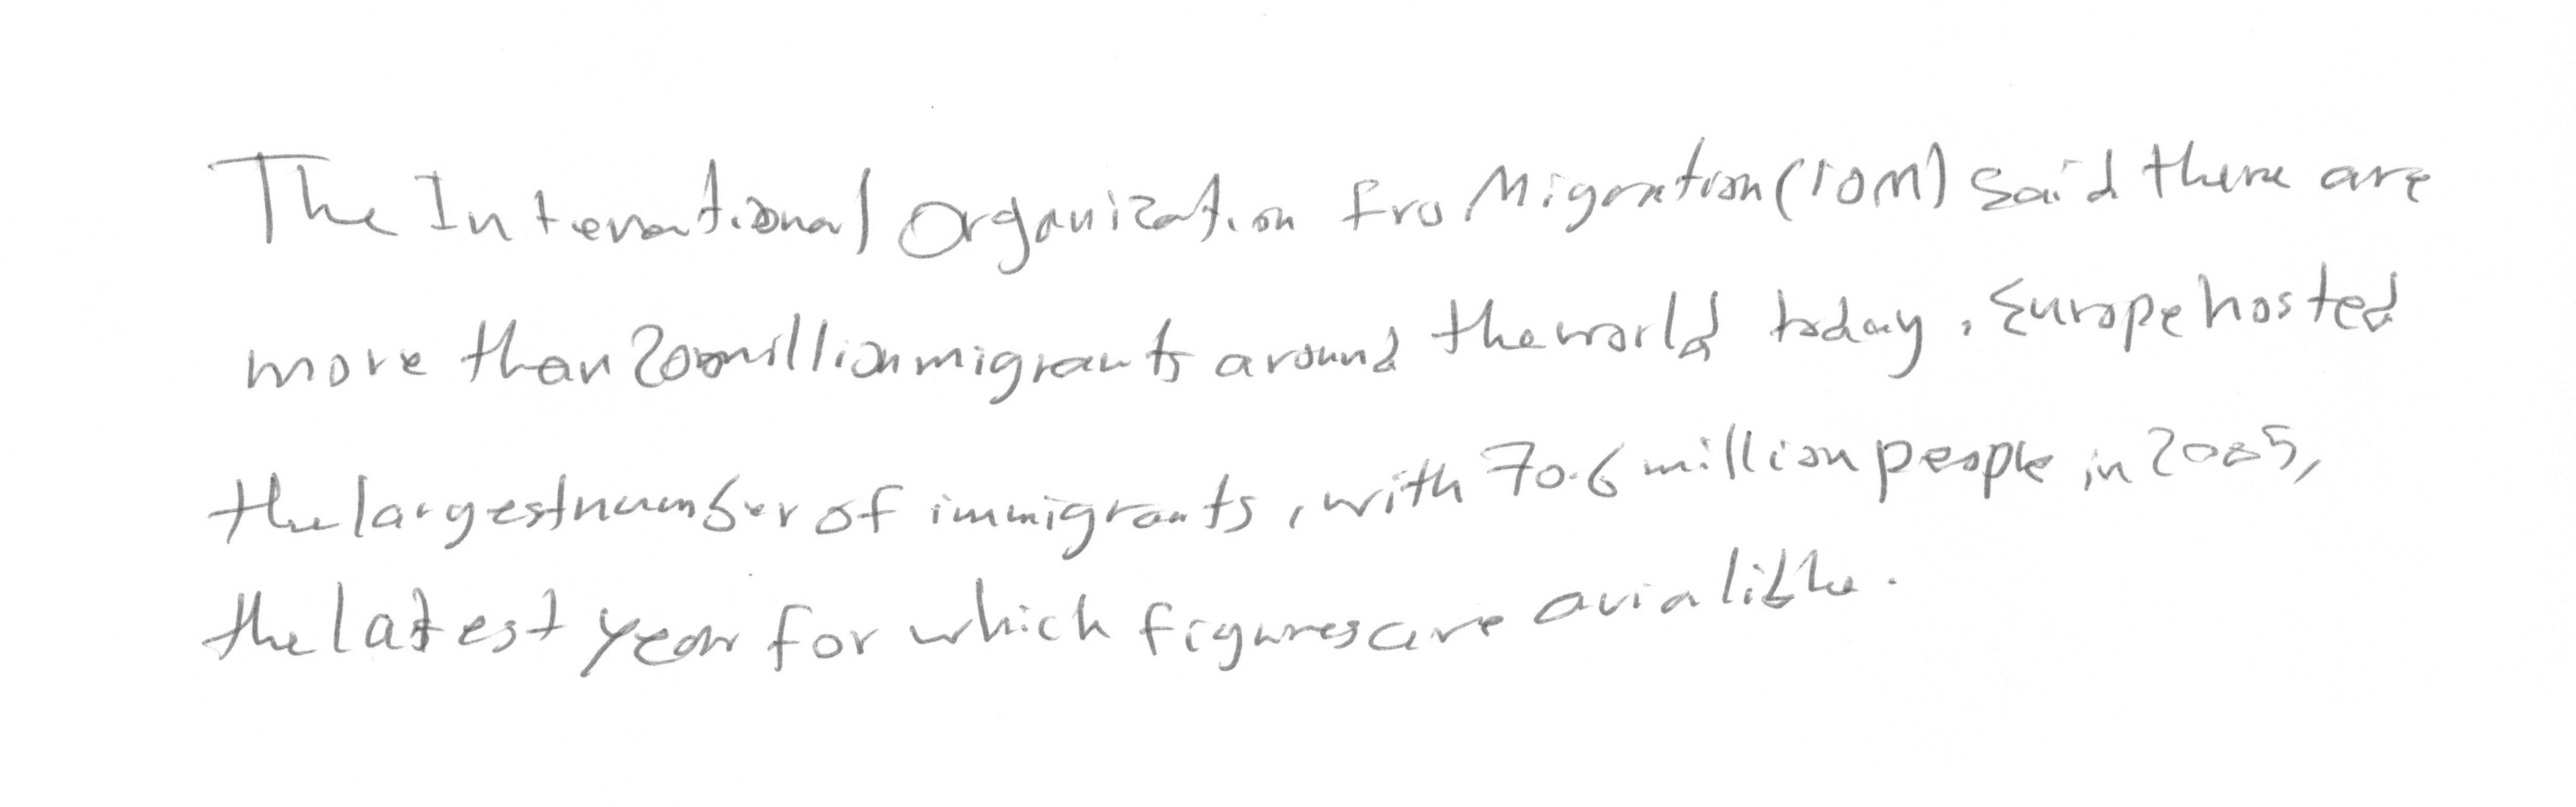 The International Organization fro Migration (IOM) said there are
more than 200 million migrants around the world today. Europe hosted
the largest number of immigrants, with 70.6 million people in 2005,
the latest year for which figures are avialible.